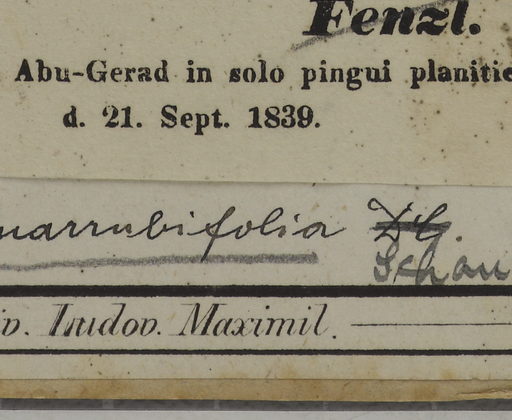 Fenzl.
Abu-Gerad in solo pingui planitie
d. 21. Sept. 1839.
marrubifolia DC.
Schau
iv. Ludov. Maximil.